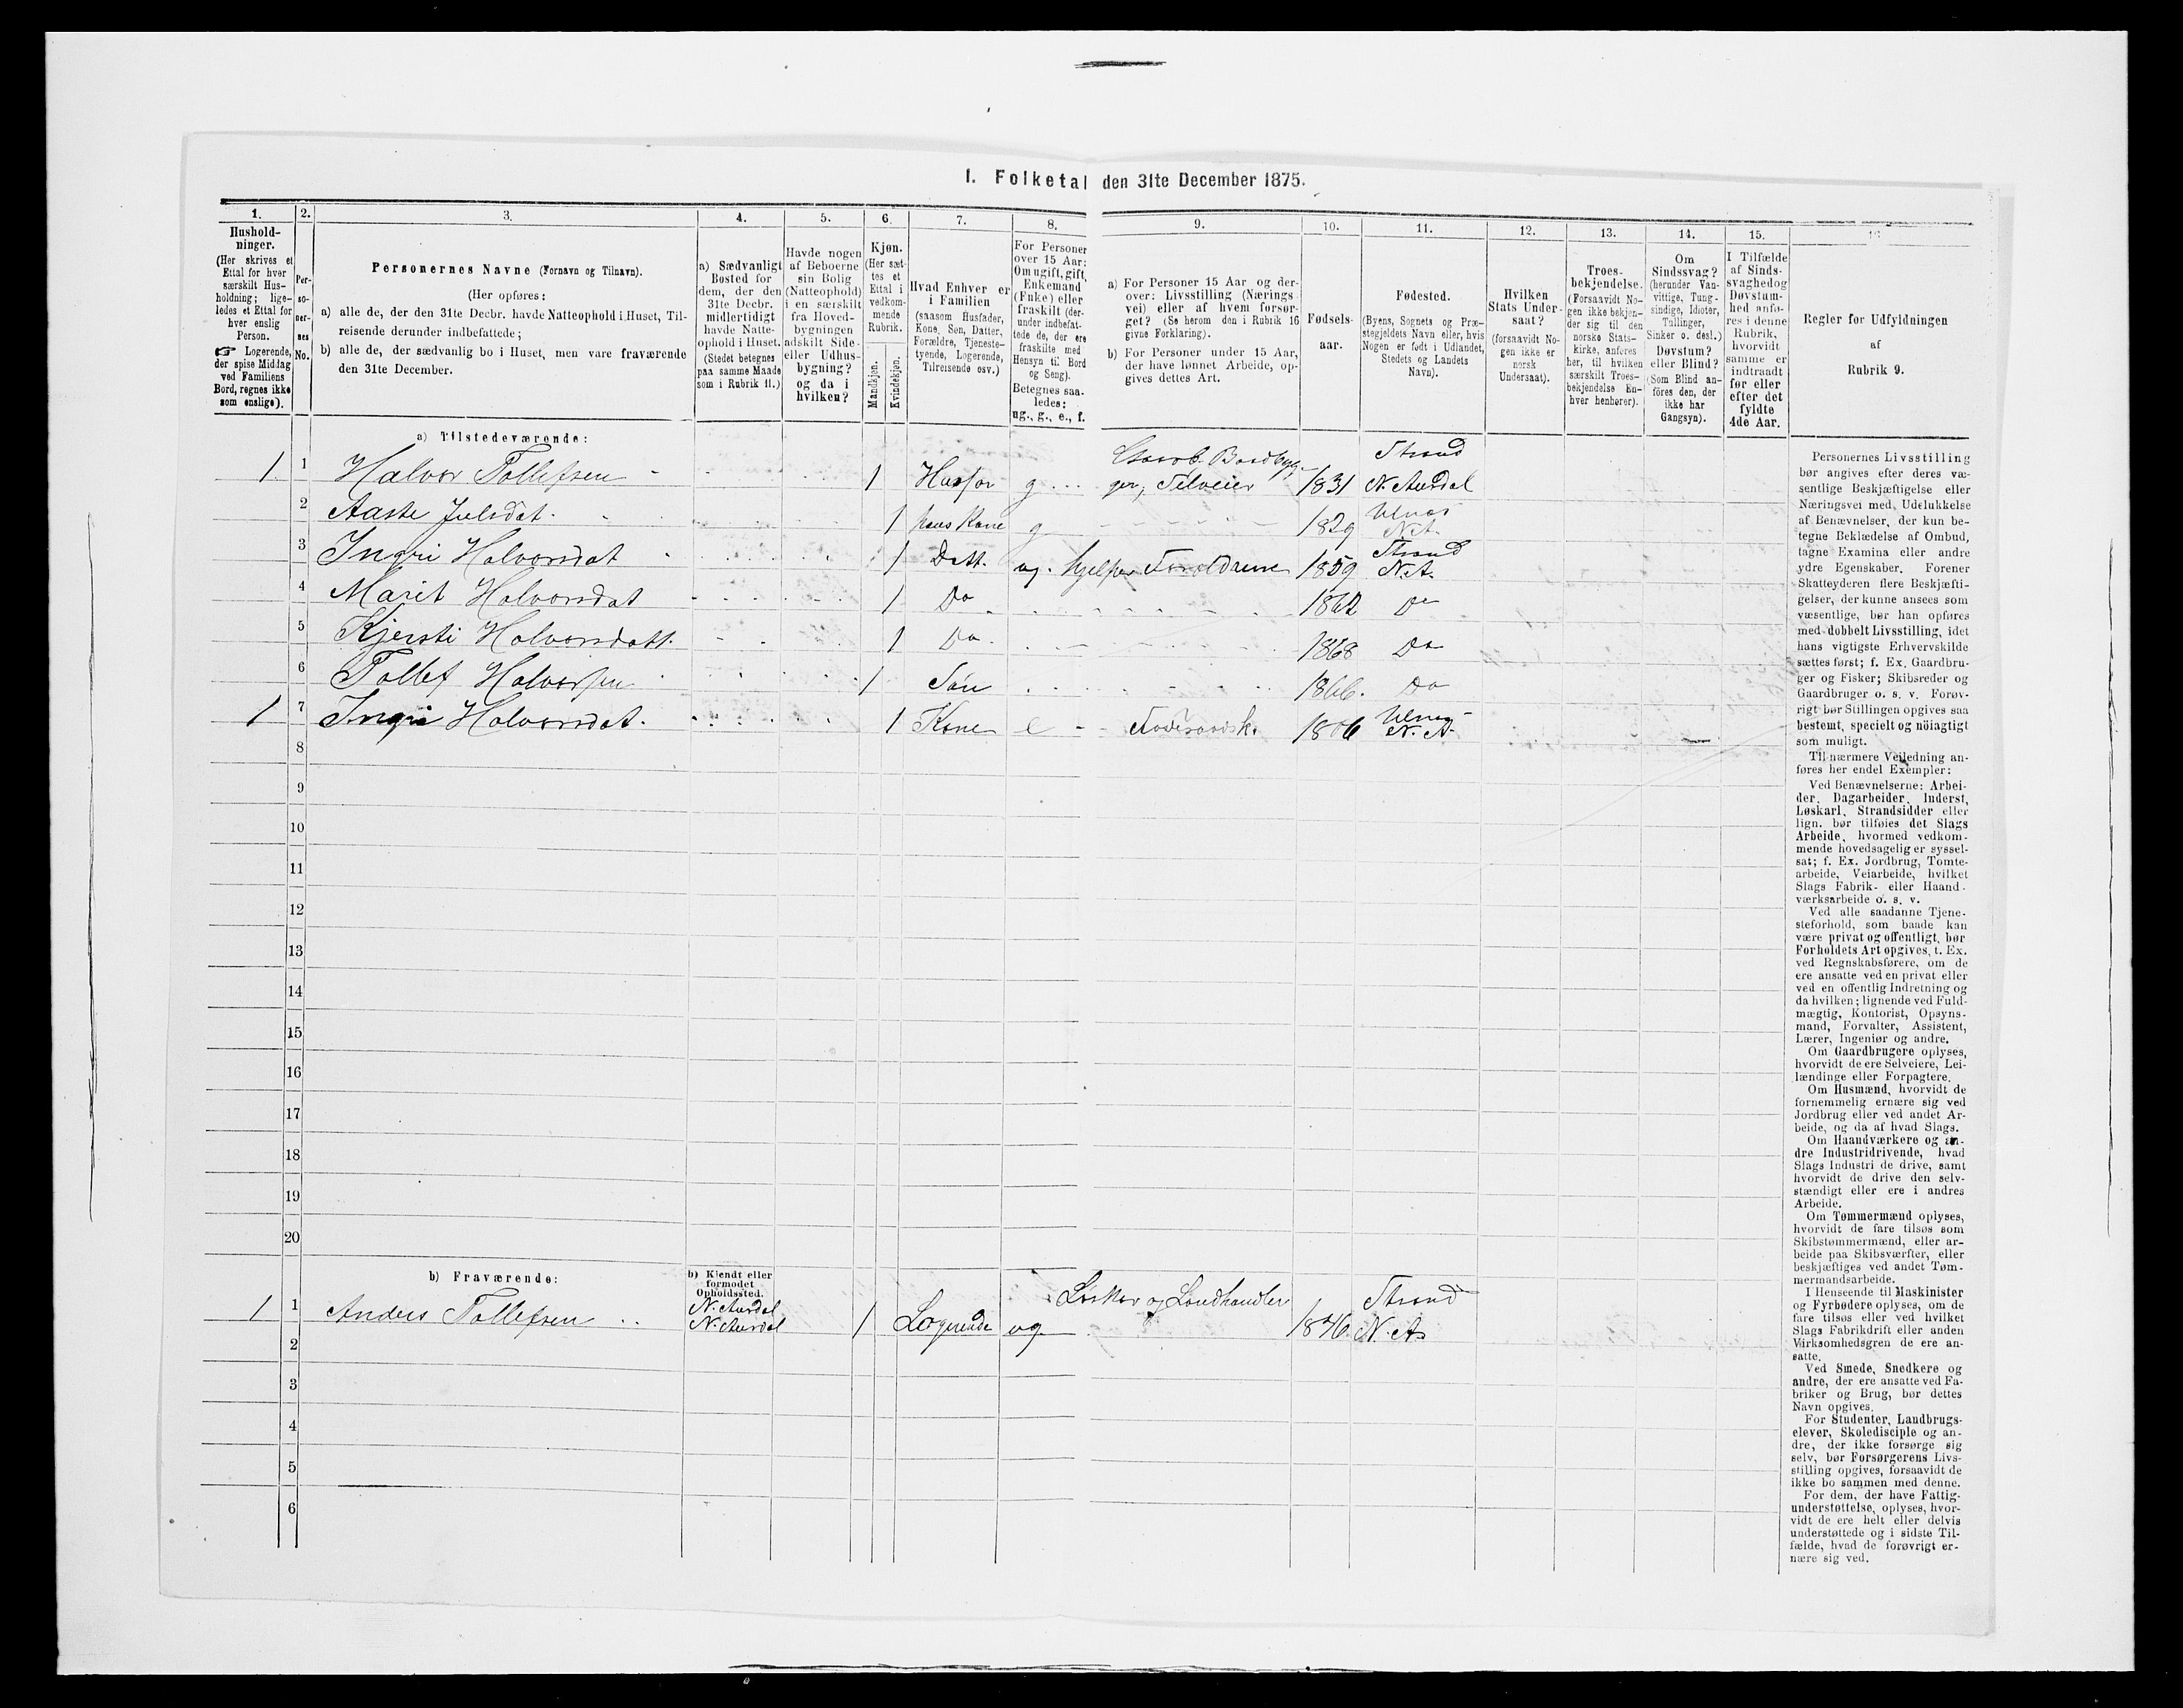 I. Folketal den 31te December 1875.
1.
Hushold-
ninger.
(Her skrives et
Ettal for hver
særskilt Hus-
holdning; lige-
ledes et Ettal for
hver enslig
Person.
☞ Logerende,
der spise Middag
ved Familiens
Bord, regnes ikke
som enslige).
2.
Per-
so-
ner-
nes
No.
3.
Personernes Navne (Fornavn og Tilnavn).
(Her opføres:
a) alle de, der den 31te Decbr. havde Natteophold i Huset, Til-
reisende derunder indbefattede;
b) alle de, der sædvanlig bo i Huset, men vare fraværende
den 31te December.
4.
a) Sædvanligt
Bosted for
dem, der den
31te Decbr.
midlertidigt
havde Natte-
ophold i Huset.
(Stedet betegnes
paa samme Maade
som i Rubrik 11.)
5.
Havde nogen
af Beboerne
sin Bolig
(Natteophold)
i en særskilt
fra Hoved-
bygningen
adskilt Side-
eller Udhus-
bygning?
og da i
hvilken?
6.
Kjøn.
(Her sæt-
tes et
Ettal i
vedkom-
mende
Rubrik.
Mandkjøn.
Kvindekjøn.
7.
Hvad Enhver er
i Familien
(saasom Husfader,
Kone, Søn, Datter,
Forældre, Tjeneste-
tyende, Logerende,
Tilreisende osv.)
8.
For Personer
over 15 Aar:
Om ugift, gift,
Enkemand
(Enke) eller
fraskilt (der-
under indbefat-
tede de, der ere
fraskilte med
Hensyn til Bord
og Seng).
Betegnes saa-
ledes:
ug., g., e., f.
9.
a) For Personer 15 Aar og der-
over: Livsstilling (Nærings-
vei) eller af hvem forsør-
get? (Se herom den i Rubrik 16
givne Forklaring).
b) For Personer under 15 Aar,
der have lønnet Arbeide, op-
gives dettes Art.
10.
Fødsels-
aar.
11.
Fødested.
(Byens, Sognets og Præ-
stegjeldets Navn eller, hvis
Nogen er født i Udlandet,
Stedets og Landets
Navn).
12.
Hvilken
Stats Under-
saat?
(forsaavidt No-
gen ikke er
norsk
Undersaat).
13.
Troes-
bekjendelse.
(Forsaavidt No-
gen ikke bekjen-
der sig til den
norske Stats-
kirke, anføres
her, til hvilken
særskilt Troes-
bekjendelse En-
hver henhører).
14.
Om
Sindssvag?
(herunder Van-
vittige, Tung-
sindige, Idioter,
Tullinger,
Sinker o. desl.)
Døvstum?
eller Blind?
(Som Blind an-
føres den, der
ikke har
Gangsyn).
15.
I Tilfælde
af Sinds-
svaghed og
Døvstum-
hed anfø-
res i denne
Rubrik,
hvorvidt
samme er
indtraadt
før eller
efter det
fyldte
4de Aar.
Regler for Udfyldningen
af
Rubrik 9.
a) Tilstedeværende:
1 1 Halvor Tollefsen 1 Husfar g ger, Selveier 1831 Strand N. Aurdal
2 Aaste Julsdat. 1 hans Kone g 1829 Ulnæs N.A.
3 Ingri Halvorsdat 1 Datt. ug. hjelper Forældrene 1859 Strand N.A.
4 Marit Halvorsdat 1 Do 1862 Do
5 Kjersti Halvorsdatt. 1 Do 1868 Do
6 Tollef Halvorsen 1 Søn 1866. Do
1 7 Ingri Halvorsdat. 1 Kone e 1806 Ulnæs N. A.
8
9
10
11
12
13
14
15
16
17
18
19
20
b) Fraværende:
b) Kjendt eller
formodet
Opholdssted.
1 1 Anders Tollefsen N. Aurdal N. Aurdal 1 Logerende ug. Løskar og Landhandler 1846 Strand N. A.
2
3
4
5
6
Personernes Livsstilling
bør angives efter deres væ-
sentlige Beskjæftigelse eller
Næringsvei med Udelukkelse
af Benævnelser, der kun be-
tegne Beklædelse af Ombud,
tagne Examina eller andre
ydre Egenskaber. Forener
Skatteyderen flere Beskjæfti-
gelser, der kunne ansees som
væsentlige, bør han opføres
med dobbelt Livsstilling, idet
hans vigtigste Erhvervskilde
sættes først; f. Ex. Gaardbru-
ger og Fisker; Skibsreder og
Gaardbruger o. s. v. Forøv-
rigt bør Stillingen opgives saa
bestemt, specielt og nöiagtigt
som muligt.
Til nærmere Veiledning an-
føres her endel Exempler:
Ved Benævnelserne: Arbei-
der, Dagarbeider, Inderst,
Løskarl, Strandsidder eller
lign. bør tilføies det Slags
Arbeide, hvormed vedkom-
mende hovedsagelig er syssel-
sat; f. Ex. Jordbrug, Tomte-
arbeide, Veiarbeide, hvilket
Slags Fabrik- eller Haand-
værksarbeide o. s. v.
Ved alle saadanne Tjene-
steforhold, som baade kan
være privat og offentligt, bør
Forholdets Art opgives, t. Ex.
ved Regnskabsførere, om de
ere ansatte ved en privat eller
ved en offentlig Indretning og
da hvilken; lignende ved Fuld-
mægtig, Kontorist, Opsyns-
mand, Forvalter, Assistent,
Lærer, Ingeniør og andre.
Om Gaardbrugere oplyses,
hvorvidt de ere Selveiere, Lei-
lændinge eller Forpagtere.
Om Husmænd, hvorvidt de
fornemmelig ernære sig ved
Jordbrug eller ved andet Ar-
beide, og da af hvad Slags.
Om Haandværkere og an-
dre Industridrivende, hvad
Slags Industri de drive, samt
hvorvidt de drive den selv-
stændigt eller ere i andres
Arbeide.
Om Tømmermænd oplyses,
hvorvidt de fare tilsøs som
Skibstømmermænd, eller ar-
beide paa Skibsværfter, eller
beskjæftiges ved andet Tøm-
mermandsarbeide.
I Henseende til Maskinister
og Fyrbødere oplyses, om de
fare tilsøs eller ved hvilket
Slags Fabrikdrift eller anden
Virksomhedsgren de ere an-
satte.
Ved Smede, Snedkere og
andre, der ere ansatte ved Fa-
briker og Brug, bør dettes
Navn opgives.
For Studenter, Landbrugs-
elever, Skoledisciple og an-
dre, der ikke forsørge sig
selv, bør Forsørgerens Livs-
stilling opgives, forsaavidt de
ikke bo sammen med denne.
For dem, der have Fattig-
understøttelse, oplyses, hvor-
vidt de ere helt eller delvis
understøttede og i sidste Til-
fælde, hvad de forøvrigt er-
nære sig ved.